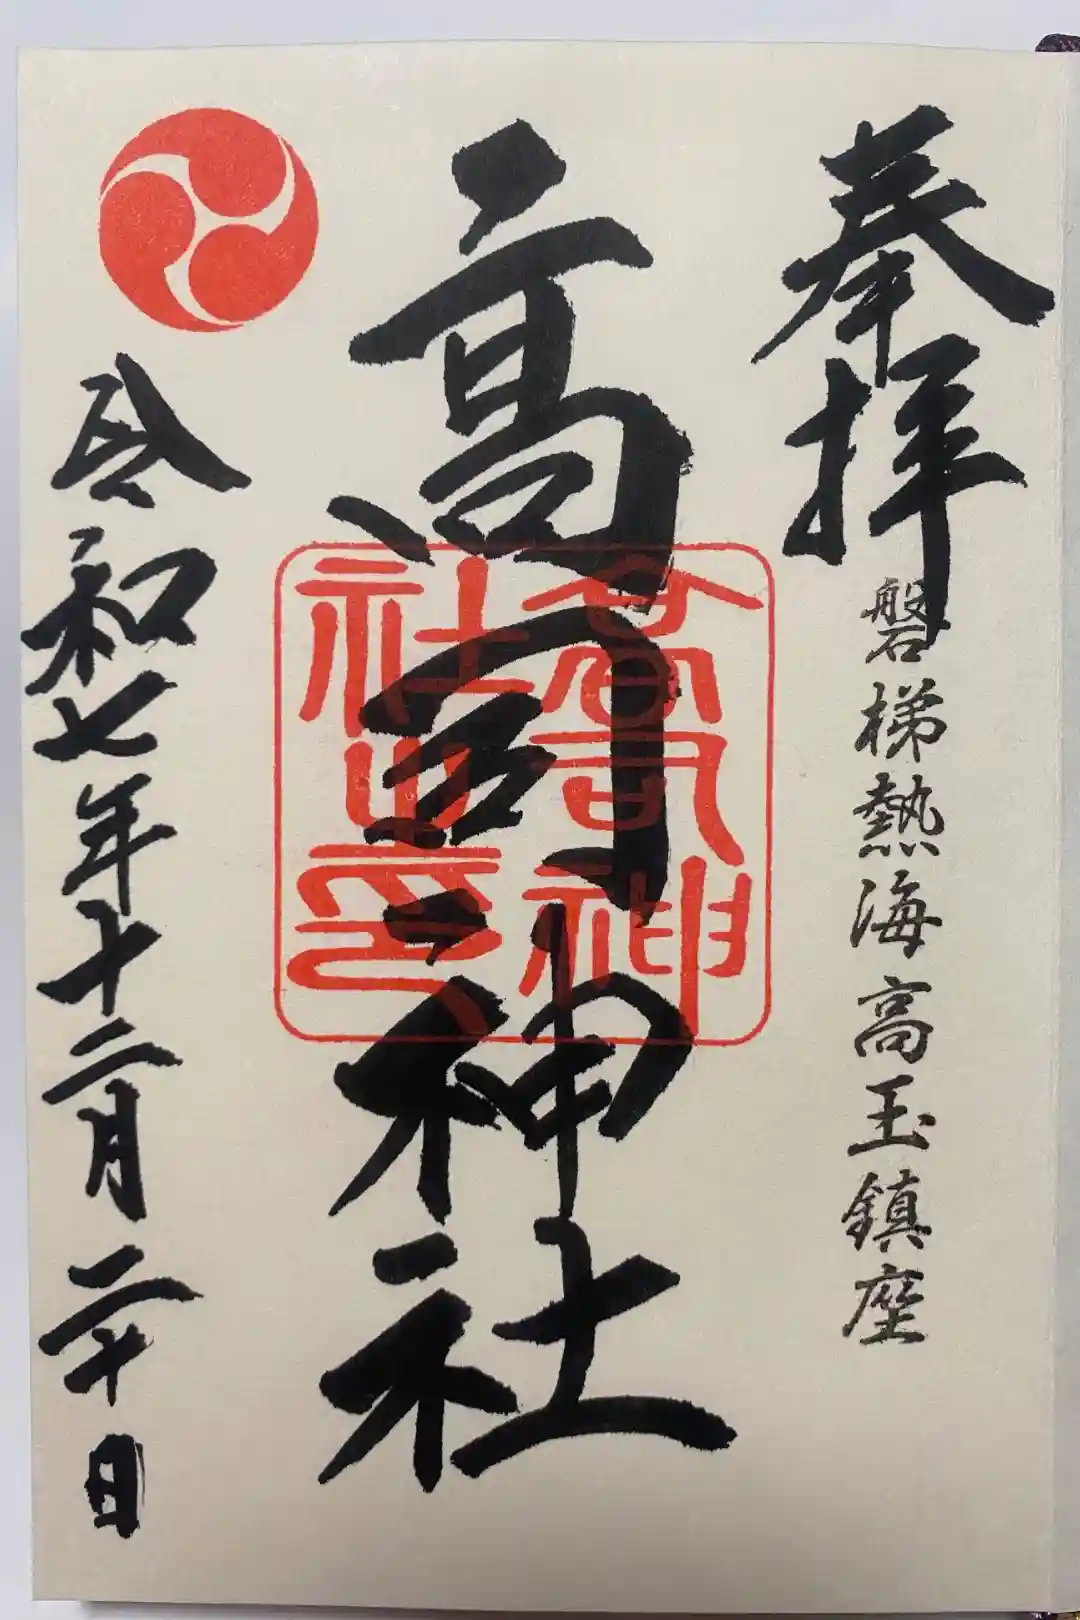 奉拝
磐梯熱海高玉鎮座
高司神社
高司神
社之印
令和七年十二月二十日